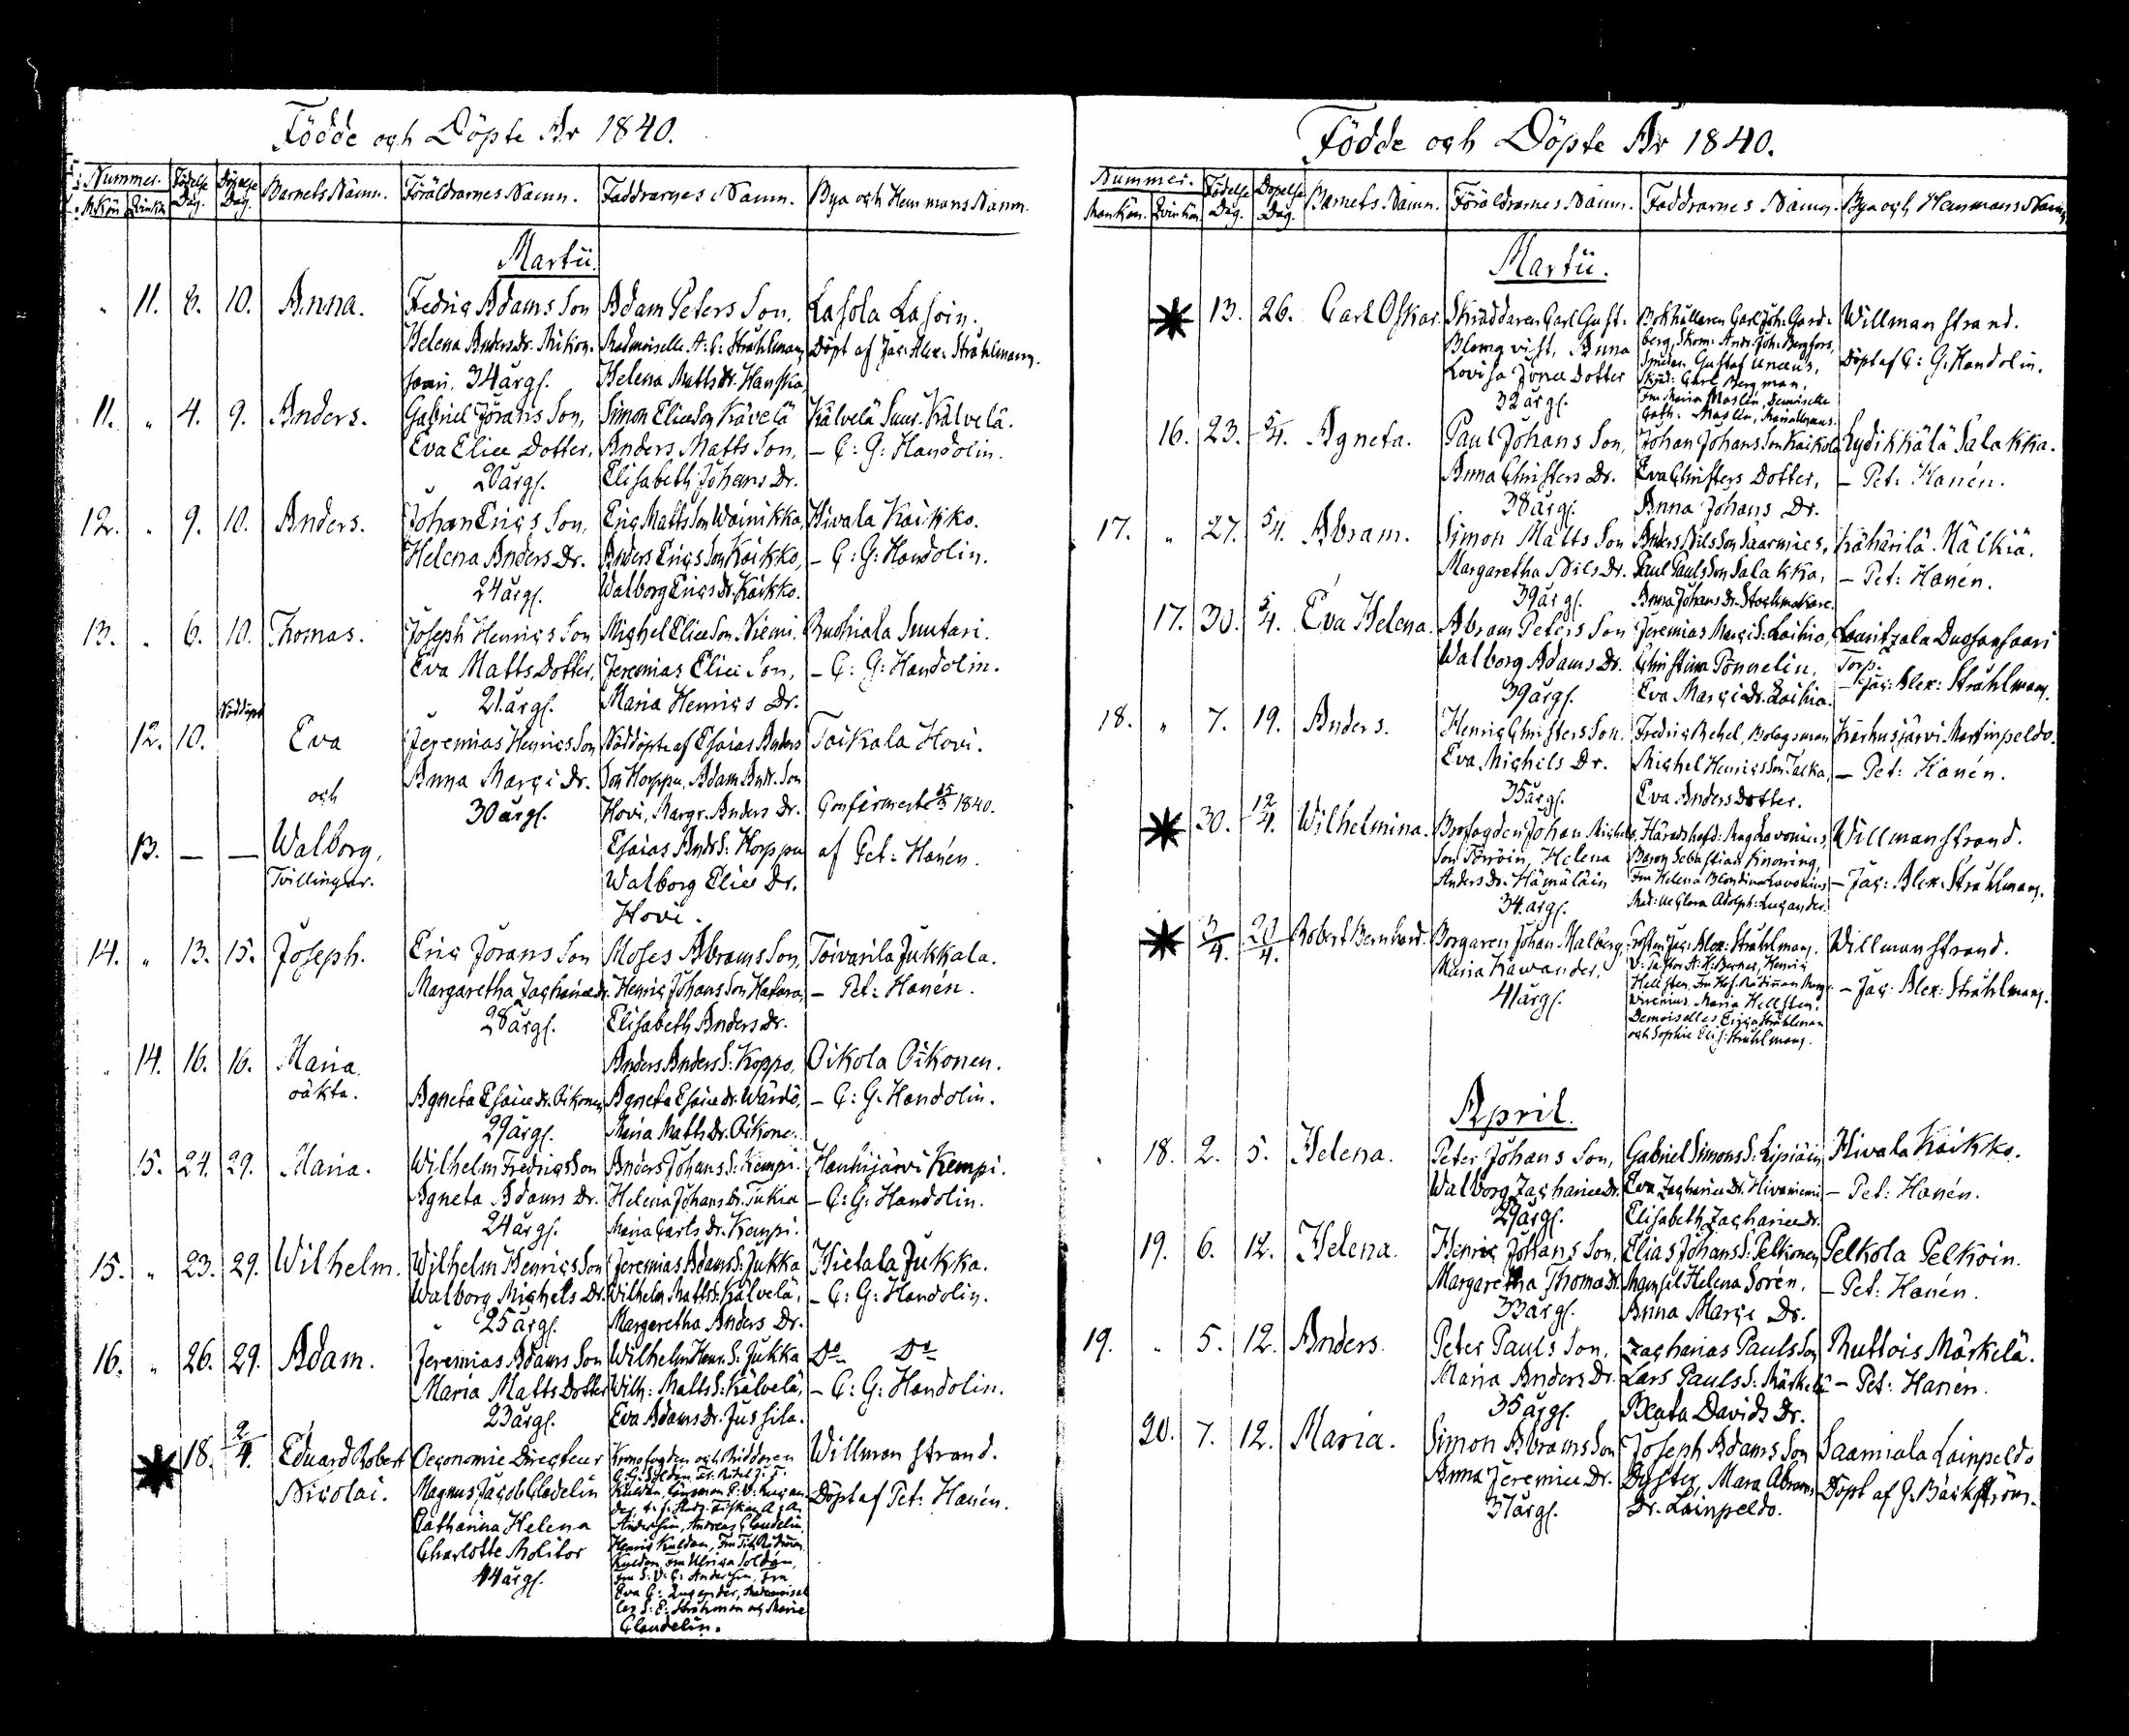 Födde och Döpte År 1840.
Nummer. Födelse Dag. Döpelse Dag. Barnets Namn. Föräldrarnes Namn. Faddrarnes Namn. Bya och Hemmans Namn.
M.Kön Qvinkön
Martii.
" 11. 8. 10. Anna. Fedric Adams Son Adam Peters Son, Lasola Lasoin.
Helena Anders Dr. Mikon- Mademoiselle A: C: Strählman, Döpt af Jac: Alex: Strählmann.
34 årg. Helena Matts Dr. Hanskia
11. " 4. 9. Anders. Gabriel Jörans Son, Simon Eliæ Son Kävelä Kälvelä Suur-Kälvelä.
Eva Eliæ Dotter, Anders Matts Son, – C: G: Handolin.
20 årg. Elisabeth Johans Dr.
12. " 9. 10. Anders. Johan Erics Son, Eric Matts Son Wainikka, Hivala Kaikko.
Helena Anders Dr. Anders Erics Son Kaikko, – C: G: Handolin.
24 årg. Walborg Erics Dr. Kaikko.
13. " 6. 10. Thomas. Joseph Henrics Son Michel Eliæ Son Niemi. Ruohiala Suutari.
Eva Matts Dotter, Jeremias Eliæ Son, – C: G: Handolin.
21 årg. Maria Henrics Dr.
Nöddöpt
12. 10. Eva Jeremias Henrics Son Nöddöpte af Esaias Anders Taikala Hovi.
Anna Marci Dr. Son Horppu, Adam Andr. Son
och 30 årg. Hovi, Margr. Anders Dr. Confirmerte 15/3 1840.
13. – – Walborg, Esaias Ands S: Horppu af Pet: Hanén.
Tvillingar. Walborg Eliæ Dr.
Hovi.
14. " 13. 15. Joseph. Eric Jörans Son Moses Abrams Son, Toivarila Jukkala.
Margaretha Zachariæ Dr. Henric Johans Son Hatara, – Pet: Hanén.
28 årg. Elisabeth Anders Dr.
" 14. 16. 16. Maria Anders Anders S: Koppo, Oikola Oikonen.
oäkta. Agneta Esaiæ Dr. Oikonen, Agneta Esaiæ Dr. Wärdö, – C: G: Handolin.
29 årg. Maria Matts Dr. Oikone.
15. 24. 29. Maria. Wilhelm Fredrics Son Anders Johans S: Kempi. Hanhijärvi Kempi.
Agneta Adams Dr. Helena Johans Dr. Tukia – C: G: Handolin.
24 årg. Maria Carls Dr. Kempi.
15. " 23. 29. Wilhelm. Wilhelm Henrics Son Jeremias Adams S: Jukka Hietala Jukka.
Walborg Michels Dr. Wilhelm Matts S: Kälvelä, – C: G: Handolin.
25 årg. Margaretha Anders Dr.
16. " 26. 29. Adam. Jeremias Adams Son Wilhelm Henr. S: Jukka Do Do
Maria Matts Dotter Wilh: Matts S: Kälvelä, – C: G: Handolin.
23 årg. Eva Adams Dr. Jussila.
18. 2/4. Eduard Robert Oeconomie Directeur Kronofogden och Riddaren Willmanstrand.
Nicolai. Magnus Jacob Clodelin Döpt af Pet: Hanén.
Catharina Helena Anderssin, Andreas Claudelin,
Charlotte Molitor
44 årg. Claudelin.
Födde och Döpte År 1840.
Nummer. Födelse Dag. Döpelse Dag. Barnets Namn. Föräldrarnes Namn. Faddrarnes Namn. Bya och Hemmans Namn
Mankön. Qvinkön
Martii.
13. 26. Carl Oskar. Skräddaren Carl Gust. Bokhållaren Carl Joh. Gard- Willmanstrand.
Blomqvist, Anna berg, Skom: Andr. Joh: Bergfors,
Lovisa Jonæ Dotter Smeden Gustaf Unæus, Döpt af C: G: Handolin.
32 årg. Skräd: Carl Bergman,
Fru Maria Maslin, Demoiselle
Cath: Maslin,
16. 23. 5/4. Agneta. Paul Johans Son, Johan Johans Son Kaikola Lydikkälä Salakka.
Anna Christers Dr. Eva Christers Dotter, – Pet: Hanén.
38 årg. Anna Johans Dr.
17. " 27. 5/4. Abram. Simon Matts Son Anders Nils Son Säärmies, Kähärilä Mälkiä.
Margaretha Nils Dr. Paul Pauls Son Salakka, – Pet: Hanén.
39 årg. Anna Johans Dr. Stockmakare.
17. 30. 5/4. Eva Helena. Abram Peters Son Jeremias Marci S: Laihia, Lauritzala Ducsansaari
Walborg Adams Dr. Christina Pönnelin, Torp.
39 årg. Eva Marci Dr. Laihia. – Jac: Alex: Strählmann.
18. " 7. 19. Anders. Henric Christers Son. Fredric Rehel, Bolagsman Kärhusjärvi Martinpeldo.
Eva Michels Dr. Michel Henrics Son Talka, – Pet: Hanén.
35 årg. Eva Anders Dotter.
30. 12/4. Wilhelmina. Brofogden Johan Michels Häradshöfd: Mag Lavonius, Willmanstrand.
Son Törröin, Helena Baron Sebastian Knorring,
Anders Dr. Hämäläin Fru Helena Blondina Lavonius – Jac: Alex: Strählmann.
34 årg. Mad: lle Clara Adolph: Lucander.
3/4. 20/4. Robert Bernhard. Borgaren Johan Malberg, Prosten Jac: Alex: Strählmann. Willmanstrand.
Maria Kawander. V: Pastor A: H: Bernér, Henric
41 årg. – Jac: Alex: Strählmann.
Wirenius, Maria Hellsten,
Demoiselles Erica Strählman
och Sophie Elis: Strählmann.
April.
" 18. 2. 5. Helena. Peter Johans Son, Gabriel Simons S: Lipiäin Hivala Kaikko.
Walborg Zachariæ Dr. Eva Zachariæ Dr. Hivaniemi – Pet: Hanén.
29 årg. Elisabeth Zachariæ Dr.
19. 6. 12. Helena. Henric Johans Son, Elias Johans S: Pelkonen Pelkola Pelkoin.
Margaretha Thomæ Dr. Mamsel Helena Sorén, – Pet: Hanén.
33 årg. Anna Marci Dr.
19. " 5. 12. Anders. Peter Pauls Son, Zacharias Pauls Son Ruttois Märkelä.
Maria Anders Dr. Lars Pauls S: Märkelä – Pet: Hanén.
35 årg. Beata Davids Dr.
20. 7. 12. Maria. Simon Abrams Son Joseph Adams Son Saamiala Lainpeldo
Anna Jeremiæ Dr. Dyster, Mara Abrams Döpt af J. Bäckström.
37 årg. Dr. Lainpeldo.